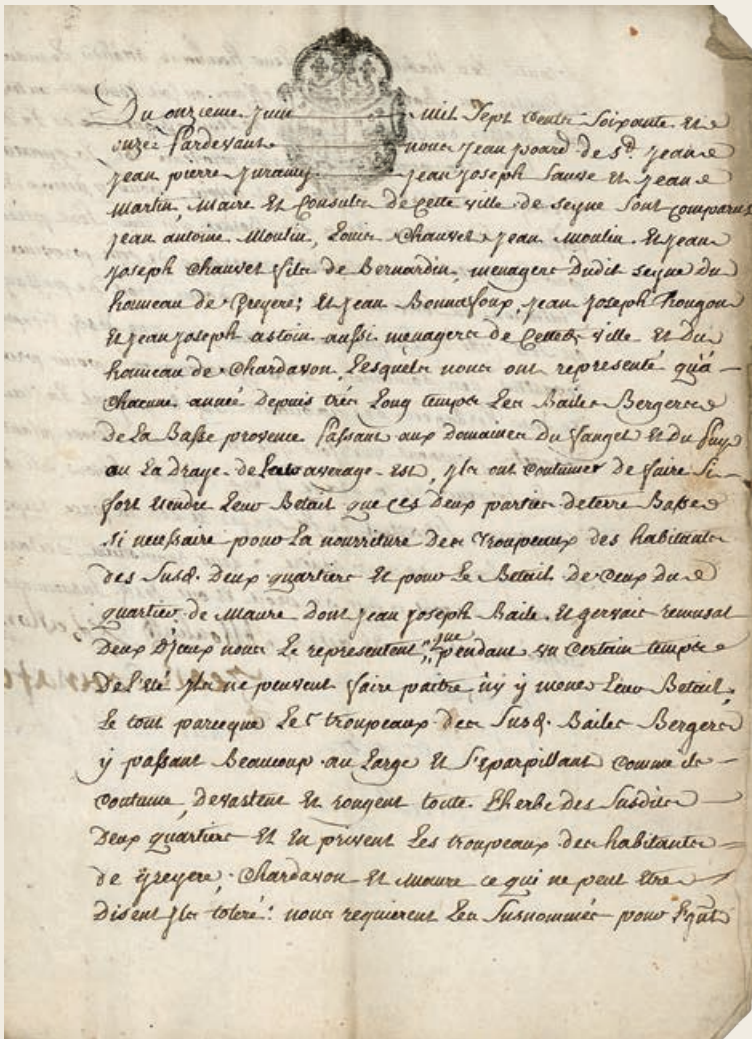 Du onzieme Juin mil Sept Cents Soixante Et
onze Pardevant nous Jean poard de St. Jean
Jean pierre Juramy Jean Joseph Sauve Et Jean
Martin, Maire Et Consuls de Cette ville de seyne sont comparus
Jean antoine Moulin, Louis Chauvet Jean Moulin Et Jean
Joseph Chauvet fils de Bernardin, menagers Dudit seyne du
hameau de Greyere; Et Jean Bonnafoux, Jean Joseph Hougon
Et Jean Joseph astoin aussi menagers de Cette ville Et Du
hameau de Chardavon, Lesquels nous ont représenté qu'à
Chacune année Depuis tres Long temps Les Bailes Bergers
De La Basse provence Passant aux Domaines Du Vanget Et Du Puy
au La Draye de average est, Ils ont Coutume de faire Si
fort tendre Leur Betail que ces Deux parties de terre Basse
si necessaire pour La nourriture Des Troupeaux des habitants
des Susd. Deux quartiers Et pour Le Betail De Ceux Du
quartier de Maure Dont Jean Joseph Baile Et gervais remusat
Deux D'jeux nous Le representent, que pendant un Certain temps
De L'eté Ils ne peuvent faire paitre n'y y mener Leur Betail,
Le tout parceque Les troupeaux des Susd. Bailes Bergers
y passant Beaucoup au Large Et S'eparpillant Comme de
Coutume, devastent Et rongent toute L'herbe des Susdits
Deux quartiers Et En privent Les troupeaux des habitants
de Greyere, Chardavon Et Maure ce qui ne peut Etre
Disent Ils toleré: nous requierent Les Susnommés pour